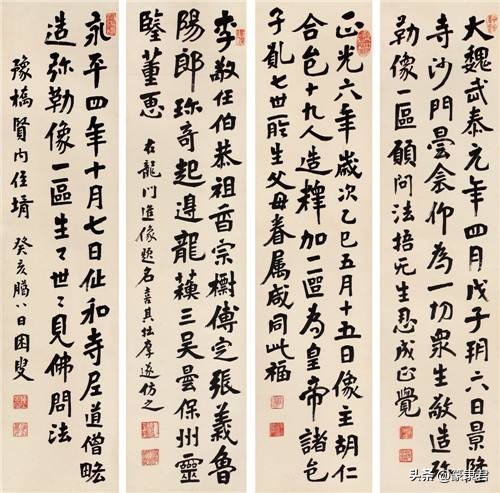 大魏武泰元年四月戊子玥六日景明
寺沙門曇念仰為一切衆生敬造弥
勒像一區願問法悟无生忍成正覺
正光六年歲次乙巳五月十五日像主胡仁
合邑十九人造釋加二區為皇帝諸邑
子亂七世所生父母眷属咸同此福
李敬任伯恭祖香宗樹傅定張義魯
陽郎珎奇起邉龍三吴曇保州靈
鑒董惠
右龍門造像題名喜其拙厚遂仿之
永平四年十月七日仙和寺尼道僧略
造弥勒像一區生々世々見佛問法
豫樀賢内侄壻 癸亥臘八日困叟
头条 @篆隶君